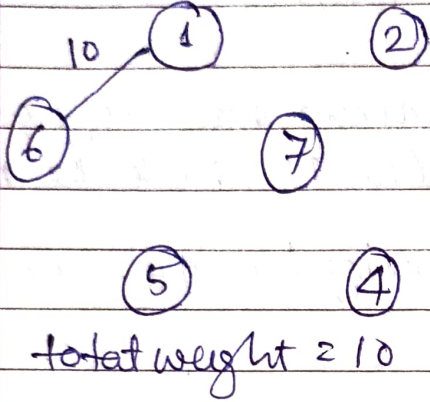 10 1 2
6 7
5 4
total weight = 10